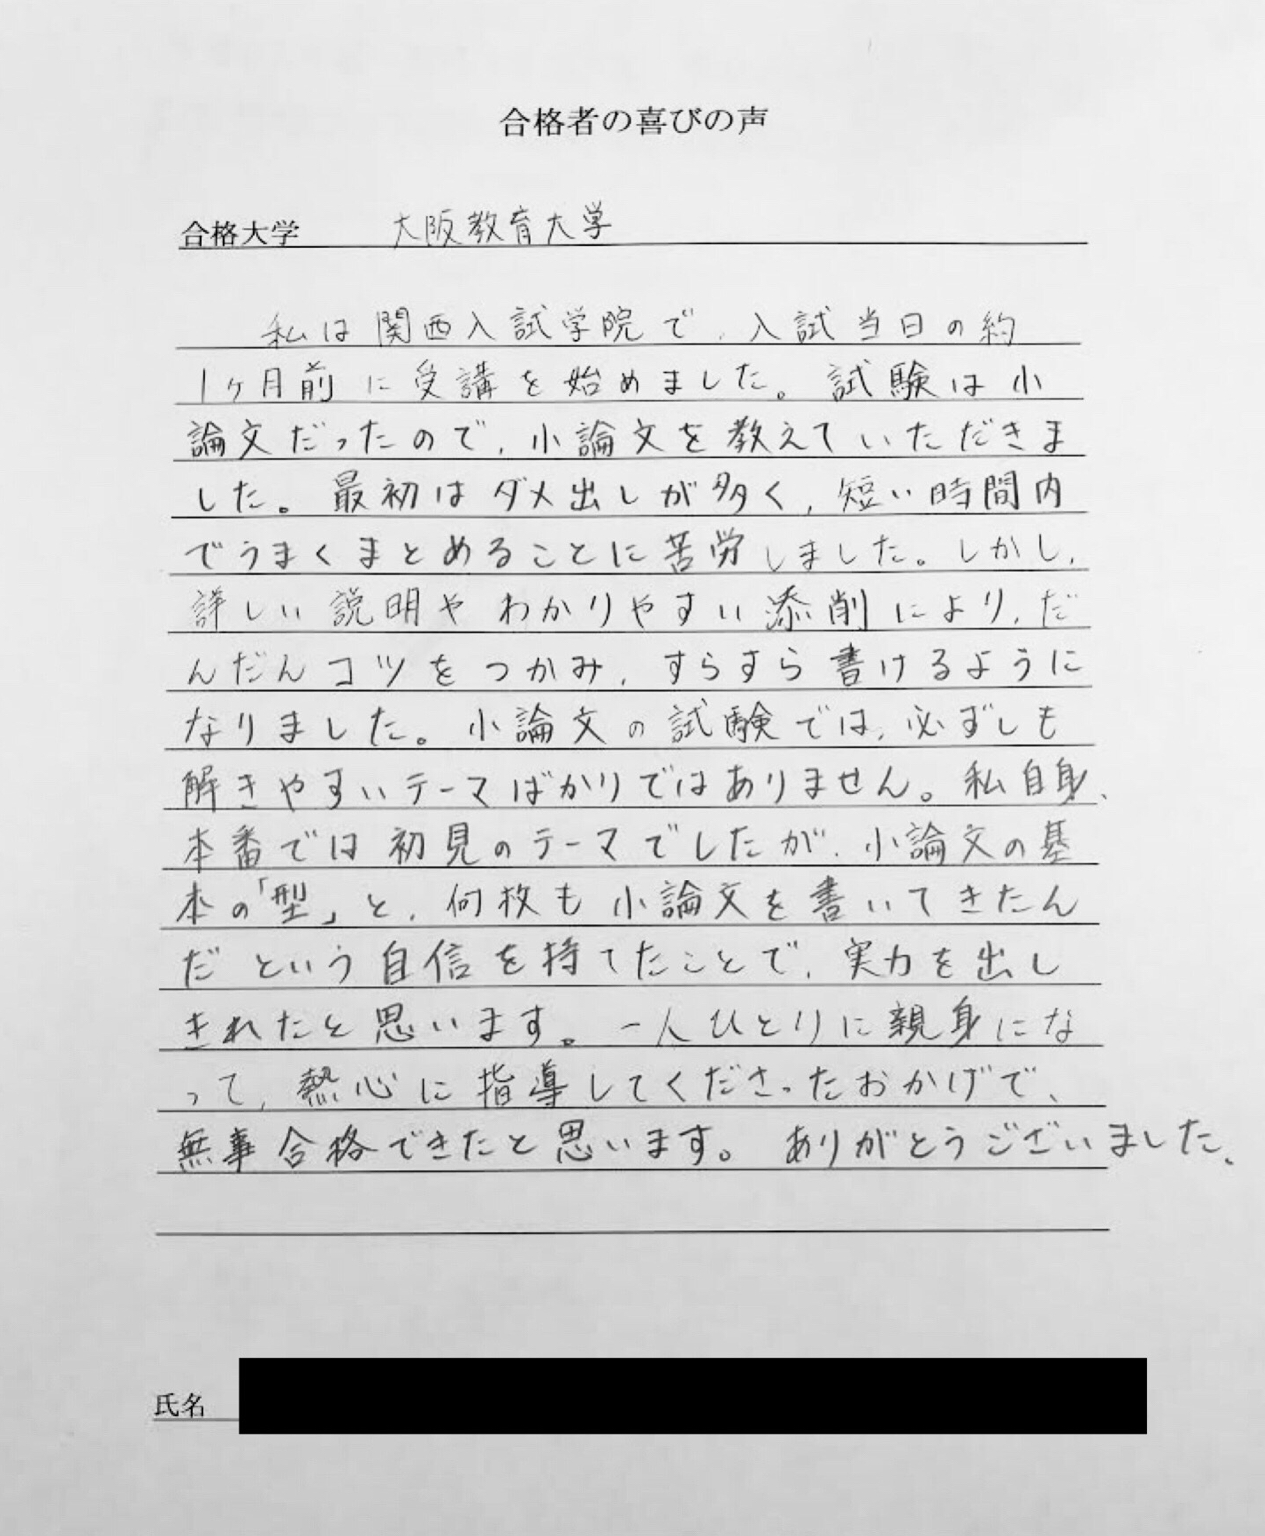 合格者の喜びの声
合格大学 大阪教育大学
私は関西入試学院で、入試当日の約
1ヶ月前に受講を始めました。試験は小
論文だったので、小論文を教えていただきま
した。最初はダメ出しが多く、短い時間内
でうまくまとめることに苦労しました。しかし、
詳しい説明やわかりやすい添削により、だ
んだんコツをつかみ、すらすら書けるように
なりました。小論文の試験では、必ずしも
解きやすいテーマばかりではありません。私自身、
本番では初見のテーマでしたが、小論文の基
本の「型」と、何枚も小論文を書いてきたん
だという自信を持てたことで、実力を出し
きれたと思います。一人ひとりに親身にな
って、熱心に指導してくださったおかげで、
無事合格できたと思います。ありがとうございました、
氏名